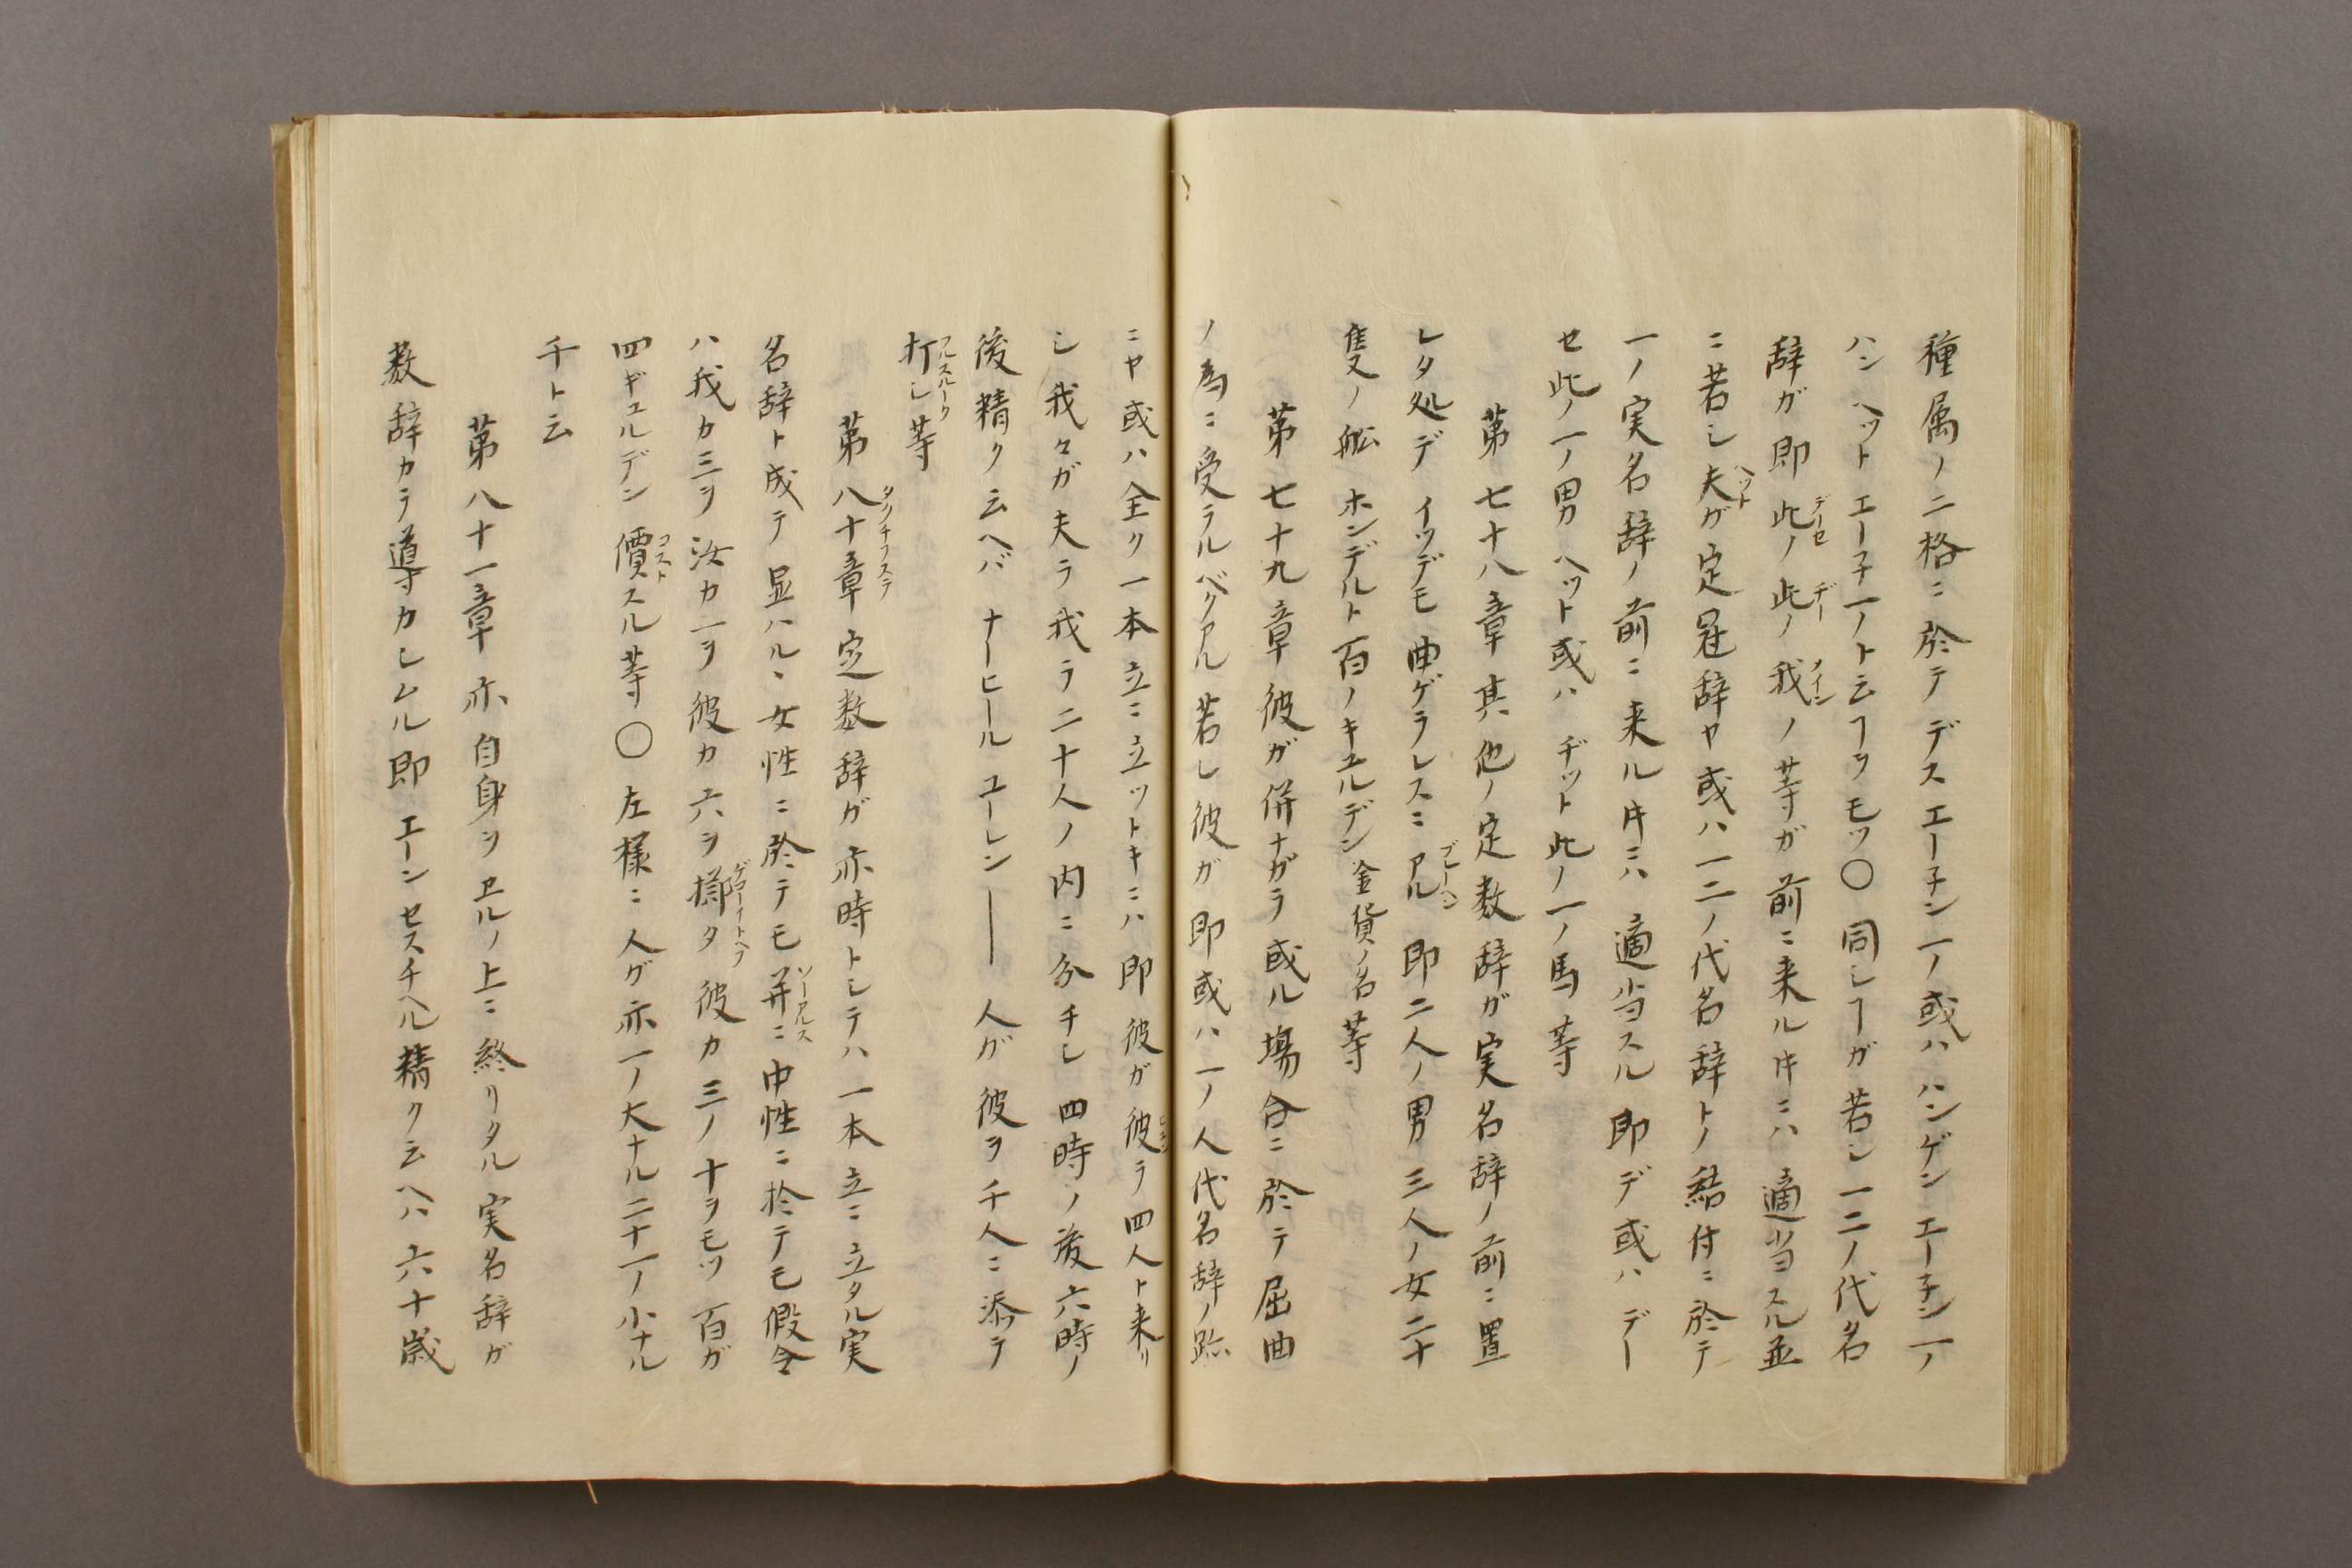 種属ノ二格ニ於テデスエーチン一ノ或ハハンゲンエーチン一ノ
ハンヘットエーチ一ノト云ヿヲモツ〇同シヿガ若シ一二ノ代名
辞ガ即此ノ此ノ我ノ等ガ前ニ来ル片ニハ適当スル並
デーセ デー メイン
ニ若シ夫ガ定冠辞ヤ或ハ一二ノ代名辞トノ結付ニ於テ
ヘット
一ノ実名辞ノ前ニ来ル片ニハ適当スル即デ或ハデー
セ此ノ一ノ男ヘット或ハヂット此ノ一ノ馬等
第七十八章其他ノ定数辞ガ実名辞ノ前ニ置
レタ処デイツデモ曲ゲラレスニアル即二人ノ男三人ノ女二十
ブレーヘン
隻ノ舩ホンデルト百ノキユルデン金貨ノ名等
第七十九章彼ガ併ナガラ或ル場合ニ於テ屈曲
ノ為ニ受ラルベクアル若シ彼ガ即或ハ一ノ人代名辞ノ跡
ニヤ或ハ全ク一本立ニ立ツトキニハ即彼ガ彼ラ四人ト来リ
シ我々ガ夫ラ我ラ二十人ノ内ニ分チシ四時ノ後六時ノ
後精ク云ヘバナーヒールユーレン――人ガ彼ヲ千人ニ添テ
打シ等
フルスルーク
第八十章定数辞ガ亦時トシテハ一本立ニ立タル実
タクチフステ
名辞ト成テ显ハルヽ女性ニ於テモ并ニ中性ニ於テモ假令
ソーアルス
ハ我カ三ヲ汝カ一ヲ彼カ六ヲ擲タ彼カ三ノ十ヲモツ百ガ
ゲゴーイトヘフ
四ギユルデン價スル等〇左様ニ人ガ亦一ノ大ナル二十一ノ小ナル
コスト
千ト云
第八十一章亦自身ヲヱルノ上ニ終リタル実名辞ガ
数辞カラ導カシムル即エーンセスチヘル精ク云ヘハ六十歳